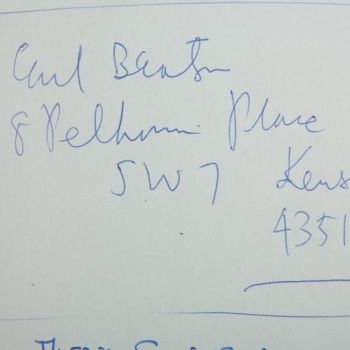 Cecil Beaton
8 Pelham Place
SW7 Kens
4351